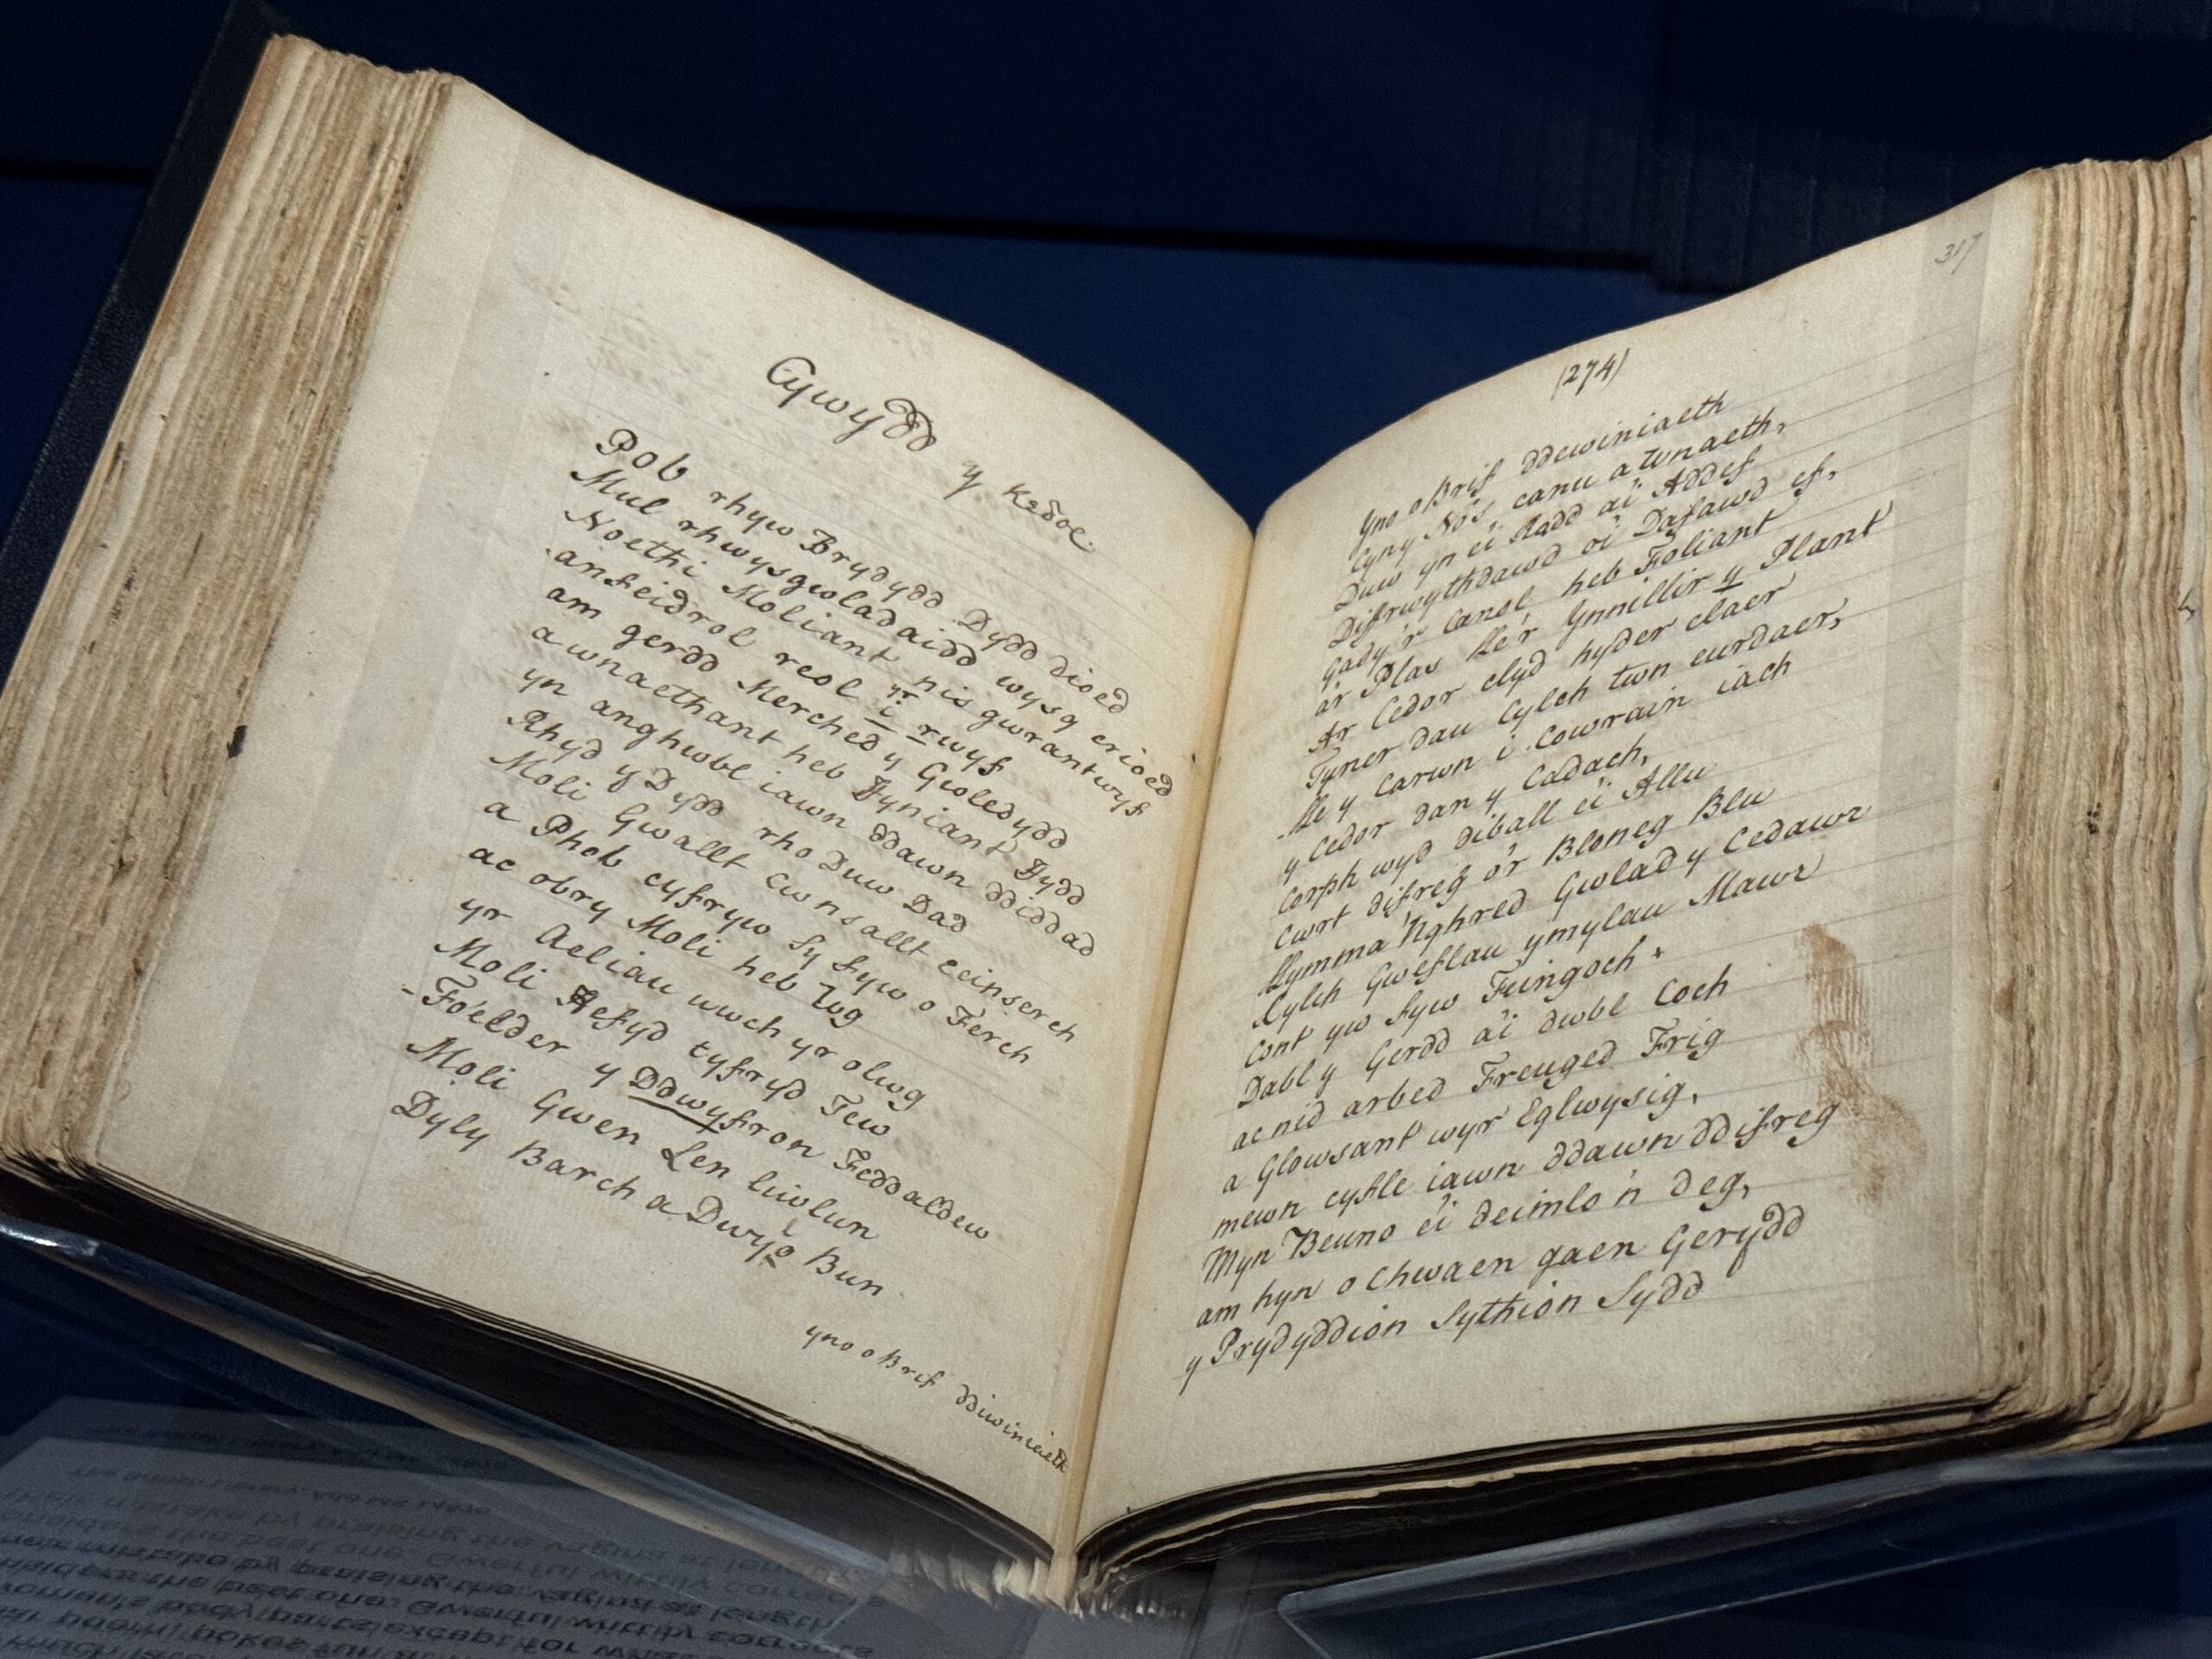 Cywydd y Kedor
Pob rhyw Brydydd Dydd dioed
Mul rhwysg wladaidd wysg erioed
Noethi Moliant nis gwrantwyf
anfeidrol reol yr i rwyf
am gerdd Merched y Gwledydd
a wnaethant heb Fyniant Fydd
yn anghwbl iawn ddawn ddiddad
Rhyd y Dydd rho Duw Dad
Moli Gwallt Cwnsallt ceinserch
a Phob cyfryw sy fyw o Ferch
ac obry Moli heb Wg
yr Aeliau uwch yr olwg
Moli Hefyd tyfryd Tew
Foelder y Ddwyfron Feddaldew
Moli Gwen Len liwlun
Dyly Barch a Dwylo Bun
yno o Brif ddiwiniaeth
317
(274)
yno o Brif ddewiniaeth
Cyn y Nos canu a wnaeth,
Duw yn ei Radd ai Addef
Difrwythdawd oi Dafawd ef,
Gady'r Canol heb Foliant
a'r Plas lle'r Ynnillir y Plant
Ar Cedor clyd hyder claer
Tyner dau Cylch twn eurdaer,
lle y Carwn i Cowrain iach
y Cedor dan y Cadach,
Corph wyd diball ei Allu
Cwrt difreg o'r Bloneg Blu
llymma 'Nghred Gwlad y Cedawr
Cylch Gweflau ymylau Mawr
Cont yw fyw Fingoch.
Dabl y Gerdd a'i dwbl Coch
ac nid arbed Freuged Frig
a Glowsant wyr Eglwysig,
mewn cyfle iawn ddawn ddifreg
Myn Beuno ei deimlo'n deg,
am hyn o Chwaen gaen Gerydd
y Prydyddion Sythion Sydd
The British Library, Add MS 14990
their mistake by praising the vagina at length
considers the best one. Gwerful wittily corrects
women's body parts except for what